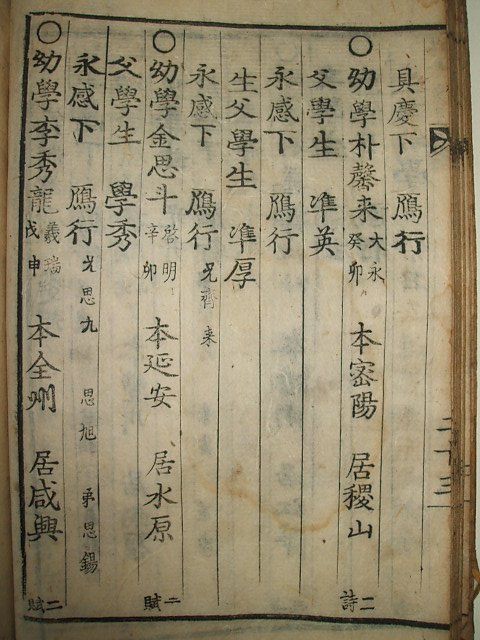 具慶下 鴈行
○幼學朴馨来大永癸卯 本密陽 居稷山 二詩
父學生 準英
永感下 鴈行
生父學生 準厚
永感下 鴈行兄齊来
○幼學金思斗啓明辛卯 本延安 居水原 二賦
父學生 學秀
永感下 鴈行兄思九 思旭 弟思錫
○幼學李秀龍義瑞戊申 本全州 居咸興 二賦
二十三